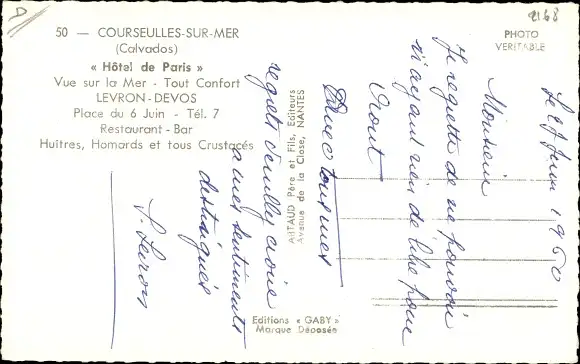 2168
50 — COURSEULLES-SUR-MER
(Calvados)
« Hôtel de Paris »
Vue sur la Mer - Tout Confort
LEVRON-DEVOS
Place du 6 Juin - Tél. 7
Restaurant - Bar
Huîtres, Homards et tous Crustacés
PHOTO
VERITABLE
ARTAUD Père et Fils, Editeurs
Avenue de la Close, NANTES
Editions « GABY »
Marque Déposée
Le Juin 1960
Monsieur
Je regrette de ne pouvoir
n'ayant rien de libre pour
Aout
Avec tous mes
regrets veuillez croire
a mes sentiments
distingués
S. Levron